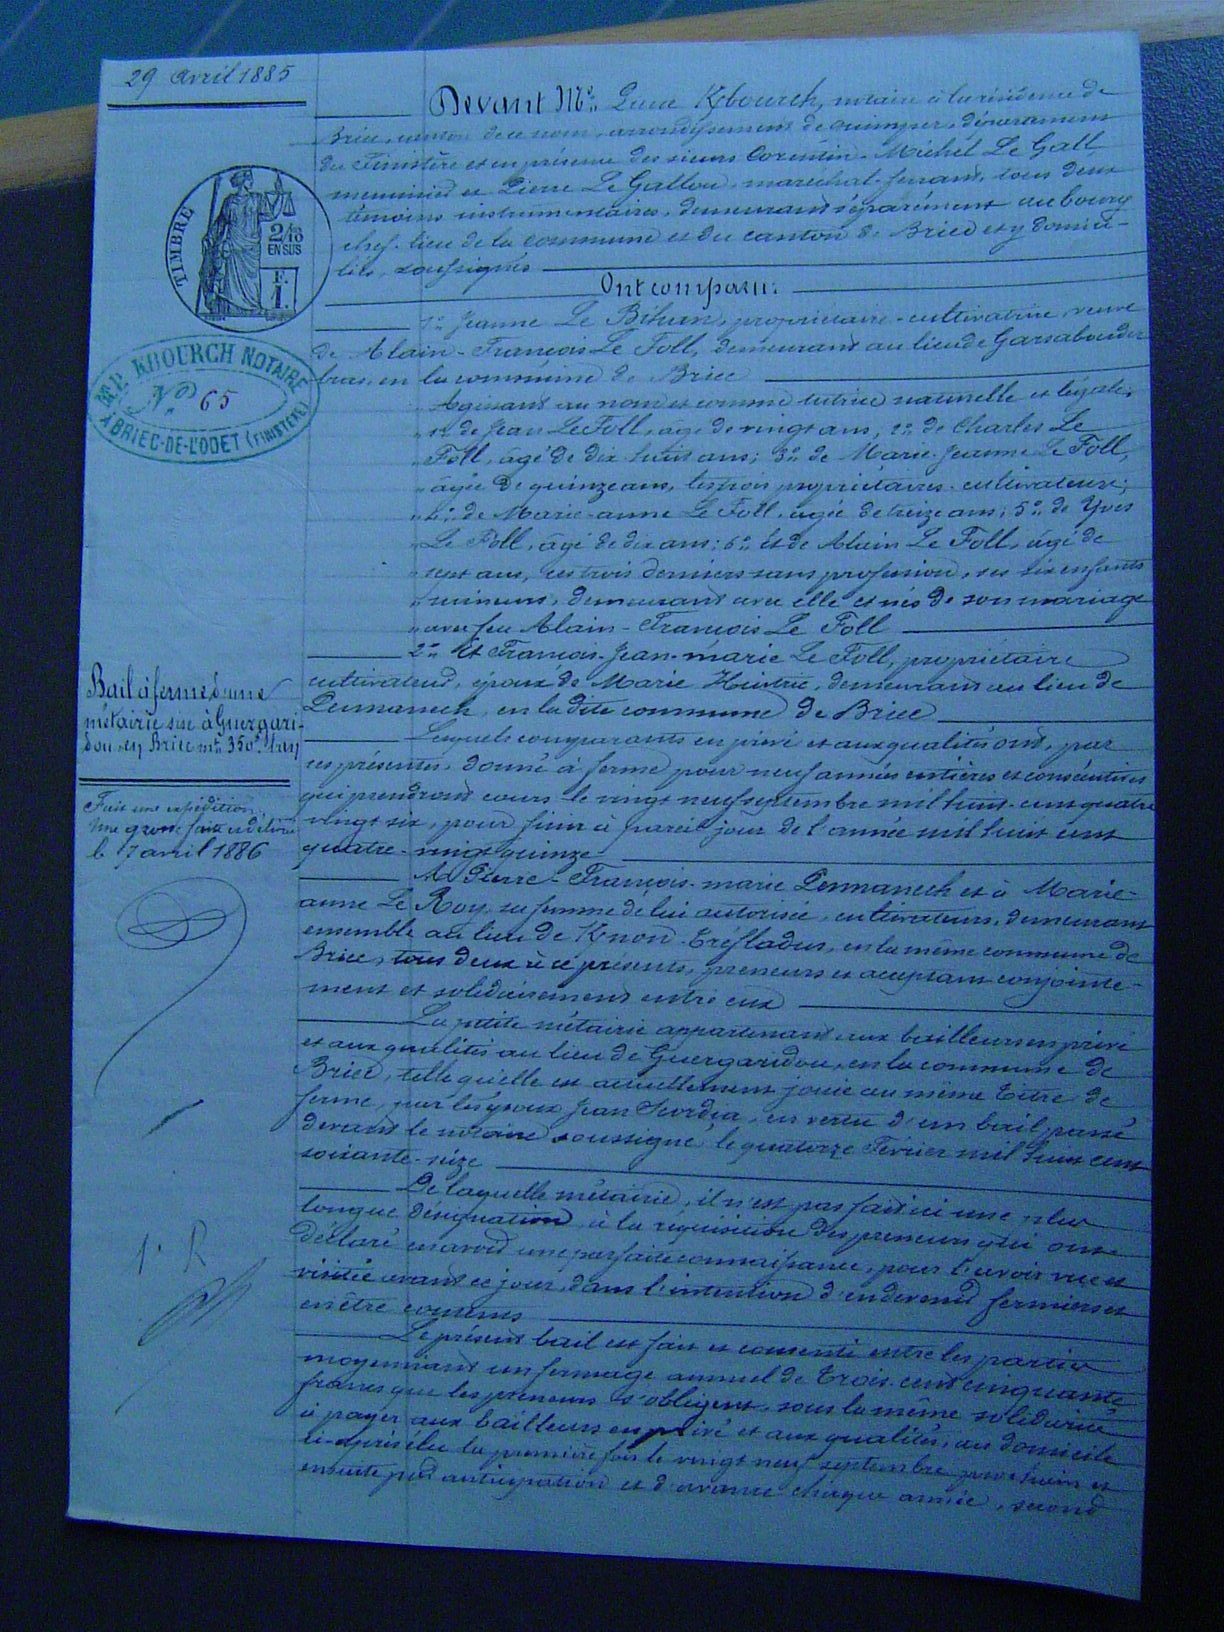 29 Avril 1885
Devant Me Pierre Kbourch, notaire à la résidence de
Briec, canton de ce nom, arrondissement de Quimper, département
du Finistère et en présence des sieurs Corentin-Michel Le Gall
menuisier et Pierre Le Gallou, maréchal-ferrant, tous deux
témoins instrumentaires, demeurant séparément au bourg
chef-lieu de la commune et du canton de Briec et y domici-
liés, soussignés
Ont comparu:
1o Jeanne Le Bihan, propriétaire-cultivatrice, veuve
de Alain-François Le Foll, demeurant au lieu de
bras, en la commune de Briec
Agissant au nom et comme tutrice naturelle et légale:
1o de Jean Le Foll, âgé de vingt ans, 2o de Charles Le
Foll, âgé de dix huit ans; 3o de Marie-Jeanne Le Foll,
âgée de quinze ans, les trois propriétaires-cultivateurs;
4o de Marie-anne Le Foll, âgée de treize ans; 5o de Yves
Le Foll, âgé de dix ans; 6o et de Alain Le Foll, âgé de
sept ans, ces trois derniers sans profession, ses six enfants
mineurs, demeurant avec elle et nés de son mariage
avec feu Alain-François Le Foll
2o Et François-Jean-marie Le Foll, propriétaire
cultivateur, époux de Marie, demeurant au lieu de
en la dite commune de Briec
Lesquels comparants en privé et aux qualités ont, par
ces présentes, donné à ferme pour neuf années entières et consécutives
qui prendront cours le vingt neuf septembre mil huit-cent quatre
vingt six, pour finir à pareil jour de l'année mil huit cent
quatre-vingt quinze
A Pierre-François-marie Pennanech et à Marie-
anne Le Roy, sa femme de lui autorisée, cultivateurs, demeurant
ensemble au lieu de Knon-Tréfladus, en la même commune de
Briec, tous deux à ce présents, preneurs et acceptant conjointe-
ment et solidairement entre eux
La petite métairie appartenant aux bailleurs en privé
et aux qualités au lieu de Guergaridou, en la commune de
Briec, telle qu'elle est actuellement jouie au même titre de
ferme, par les époux Jean, en vertu d'un bail passé
devant le notaire soussigné le quatorze Février mil huit cent
soixante-seize
De laquelle métairie, il n'est pas fait ici une plus
longue désignation à la réquisition des preneurs qui ont
déclaré en avoir une parfaite connaissance, pour l'avoir vue et
visitée avant ce jour, dans l'intention d'en devenir fermiers et
en être contents
Le présent bail est fait et consenti entre les parties
moyennant un fermage annuel de Trois-cent cinquante
francs que les preneurs s'obligent, sous la même solidarité
à payer aux bailleurs en privé et aux qualités, au domicile
ci-après élu la première fois le vingt neuf septembre prochain et
ensuite par anticipation et d'avance chaque année, second
TIMBRE
2/10
EN SUS
F.
1.
Me P. KBOURCH NOTAIRE
No 65
A BRIEC-DE-L'ODET (FINISTÈRE)
Bail à ferme d'une
métairie sise à Guergari-
dou en Briec mt 350f l'an
Fait une expédition
Une grosse faite et délivrée
le 17 avril 1886
1. R